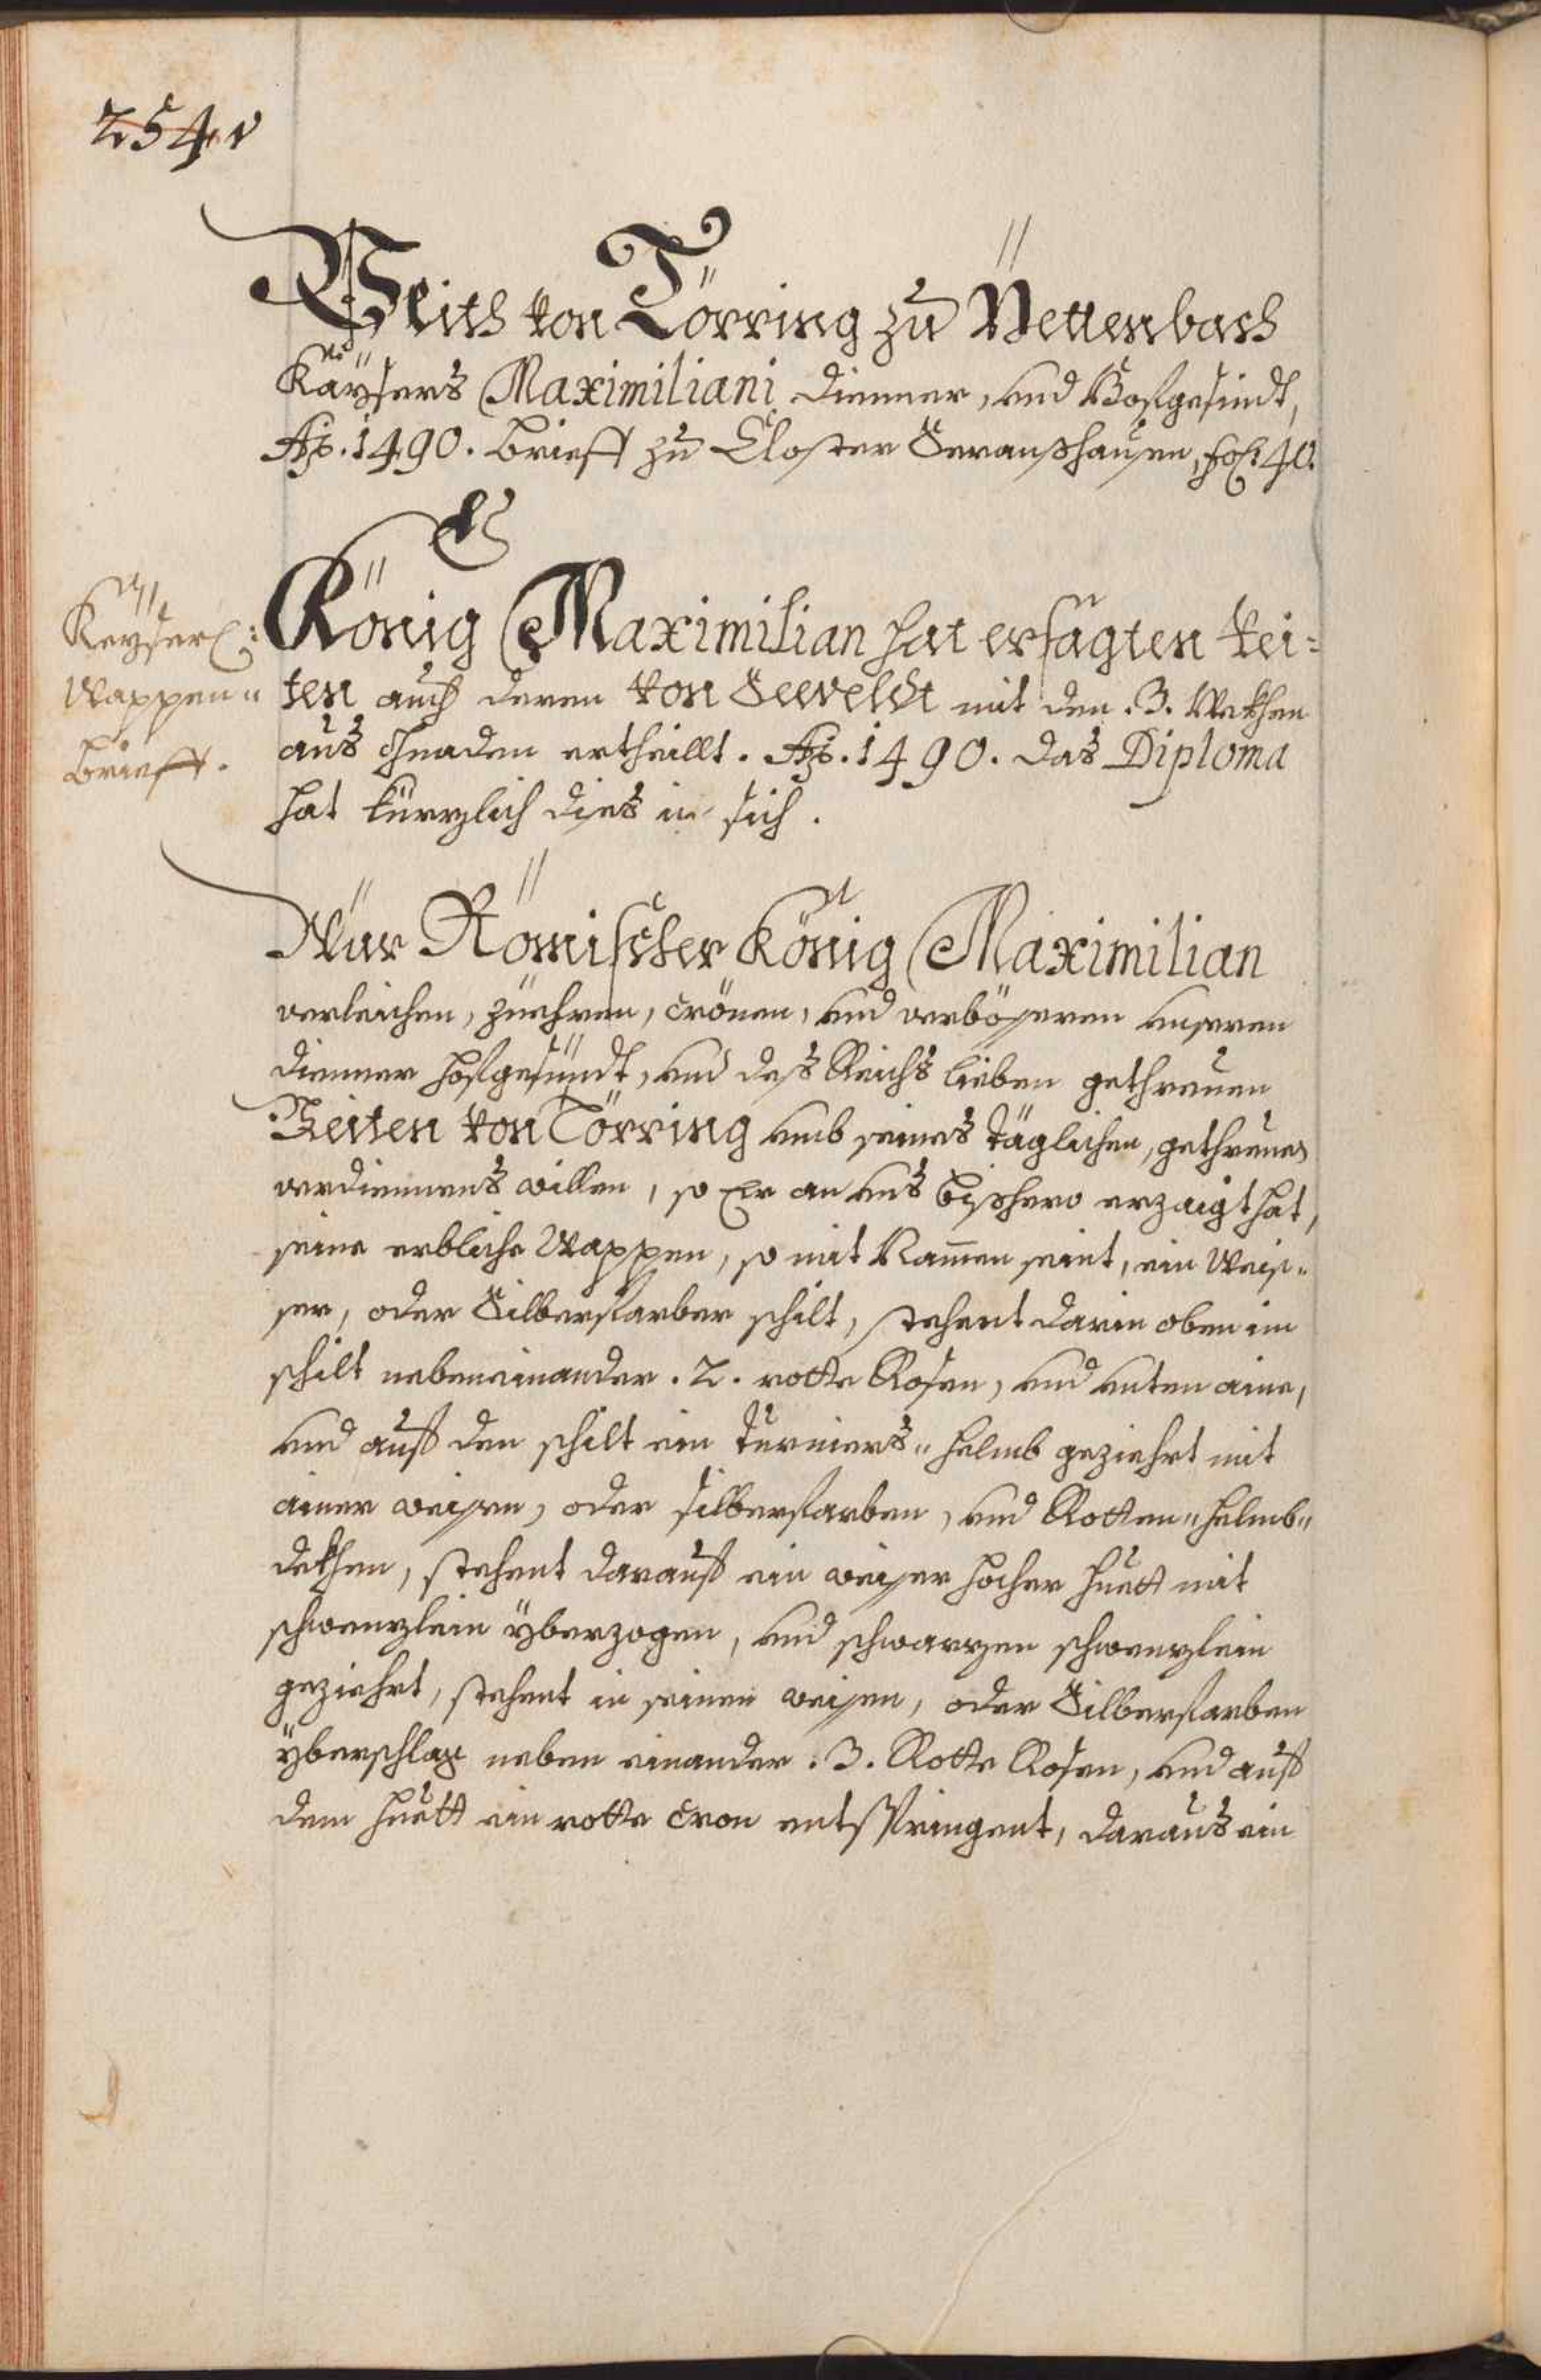 254v
Veith von Törring zu Pettenbach
Kaÿsers Maximiliani dienner, und Hofgesindt,
Ao. 1490. brieff zu Closter Seeonßhausen, fol: 40.
König Maximilian hat ersagten Vei=
ten auch denen von Seeveldt mit den .3. Wekhen
aus gnaden ertheillt. Ao. 1490. das Diploma
hat kürzlich dies in sich.
Keÿserl:
Wappen"
brieff.
Wür Römischer König Maximilian
verleichen, zuehren, crönen, und verbösseren unseren
dienner hofgesündt, und des Reichs lieben gethreuen
Veiten von Törring umb seines täglichen, gethreues
verdiennens willen, so Er an uns bißhero erzaigt hat,
seine erbliche Wappen, so mit Namen seint, ein Weis"
ser, oder Silberfarber schilt, stehent darin oben im
schilt nebeneinander .2. rotte Rosen, und unten aine,
und auf den schilt ein Turniers" helmb geziehrt mit
ainer weissen, oder silberfarben, und Rotten" helmb"
dekhen, stehent darauf ein weisser hocher huett mit
schwenzlein überzogen, und schwarzen schwenzlein
geziehrt, stehent in seinen weissen, oder Silberfarben
überschlag neben einander .3. Rotte Rosen, und auf
dem huett ein rotte cron entspringent, daraus ein